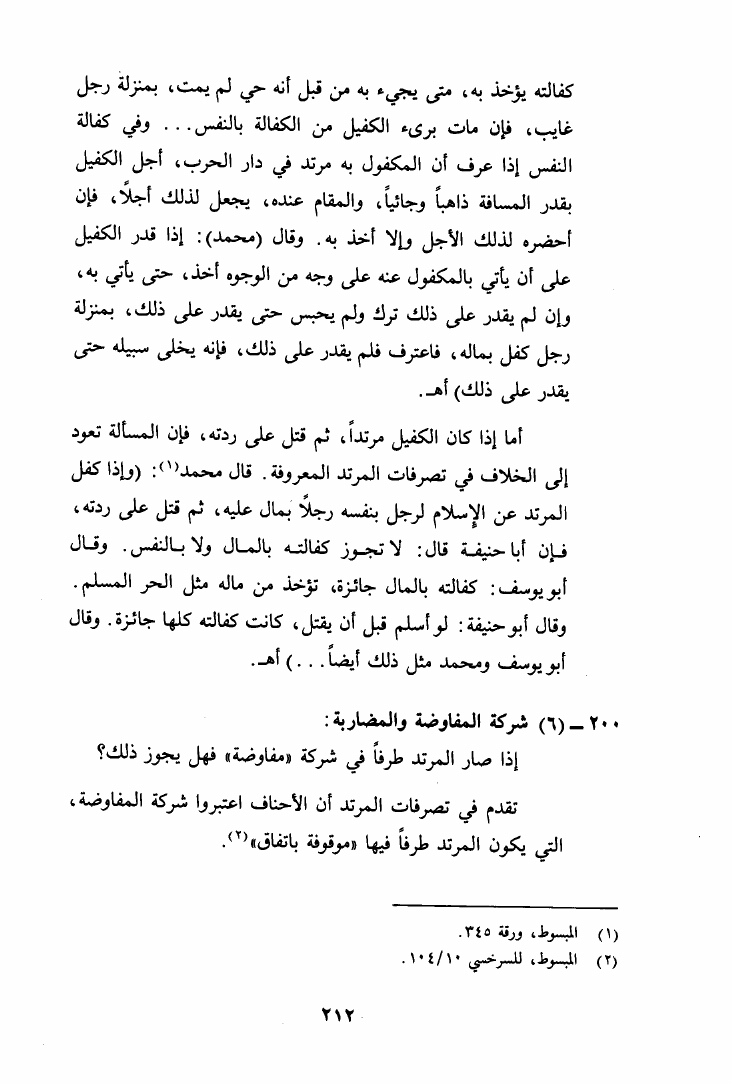 كفالته يؤخذ به، متى يجيء به من قبل أنه حي لم يمت، بمنزلة رجل
غايب، فإن مات برىء الكفيل من الكفالة بالنفس... وفي كفالة
النفس إذا عرف أن المكفول به مرتد في دار الحرب، أجل الكفيل
بقدر المسافة ذاهباً وجائياً، والمقام عنده، يجعل لذلك أجلاً، فإن
أحضره لذلك الأجل وإلا أخذ به. وقال (محمد): إذا قدر الكفيل
على أن يأتي بالمكفول عنه على وجه من الوجوه أخذ، حتى يأتي به،
وإن لم يقدر على ذلك ترك ولم يحبس حتى يقدر على ذلك، بمنزلة
رجل كفل بماله، فاعترف فلم يقدر على ذلك، فإنه يخلى سبيله حتى
يقدر على ذلك) أهـ.
أما إذا كان الكفيل مرتداً، ثم قتل على ردته، فإن المسألة تعود
إلى الخلاف في تصرفات المرتد المعروفة. قال محمد(١): (وإذا كفل
المرتد عن الإسلام لرجل بنفسه رجلاً بمال عليه، ثم قتل على ردته،
فإن أبا حنيفة قال: لا تجوز كفالته بالمال ولا بالنفس. وقال
أبو يوسف: كفالته بالمال جائزة، تؤخذ من ماله مثل الحر المسلم.
وقال أبو حنيفة: لو أسلم قبل أن يقتل، كانت كفالته كلها جائزة. وقال
أبو يوسف ومحمد مثل ذلك أيضاً...) أهـ.
٢٠٠ – (٦) شركة المفاوضة والمضاربة:
إذا صار المرتد طرفاً في شركة «مفاوضة» فهل يجوز ذلك؟
تقدم في تصرفات المرتد أن الأحناف اعتبروا شركة المفاوضة،
التي يكون المرتد طرفاً فيها «موقوفة باتفاق»(٢).
(١) المبسوط، ورقة ٣٤٥.
(٢) المبسوط، للسرخسي ١٠٤/١٠.
٢١٢